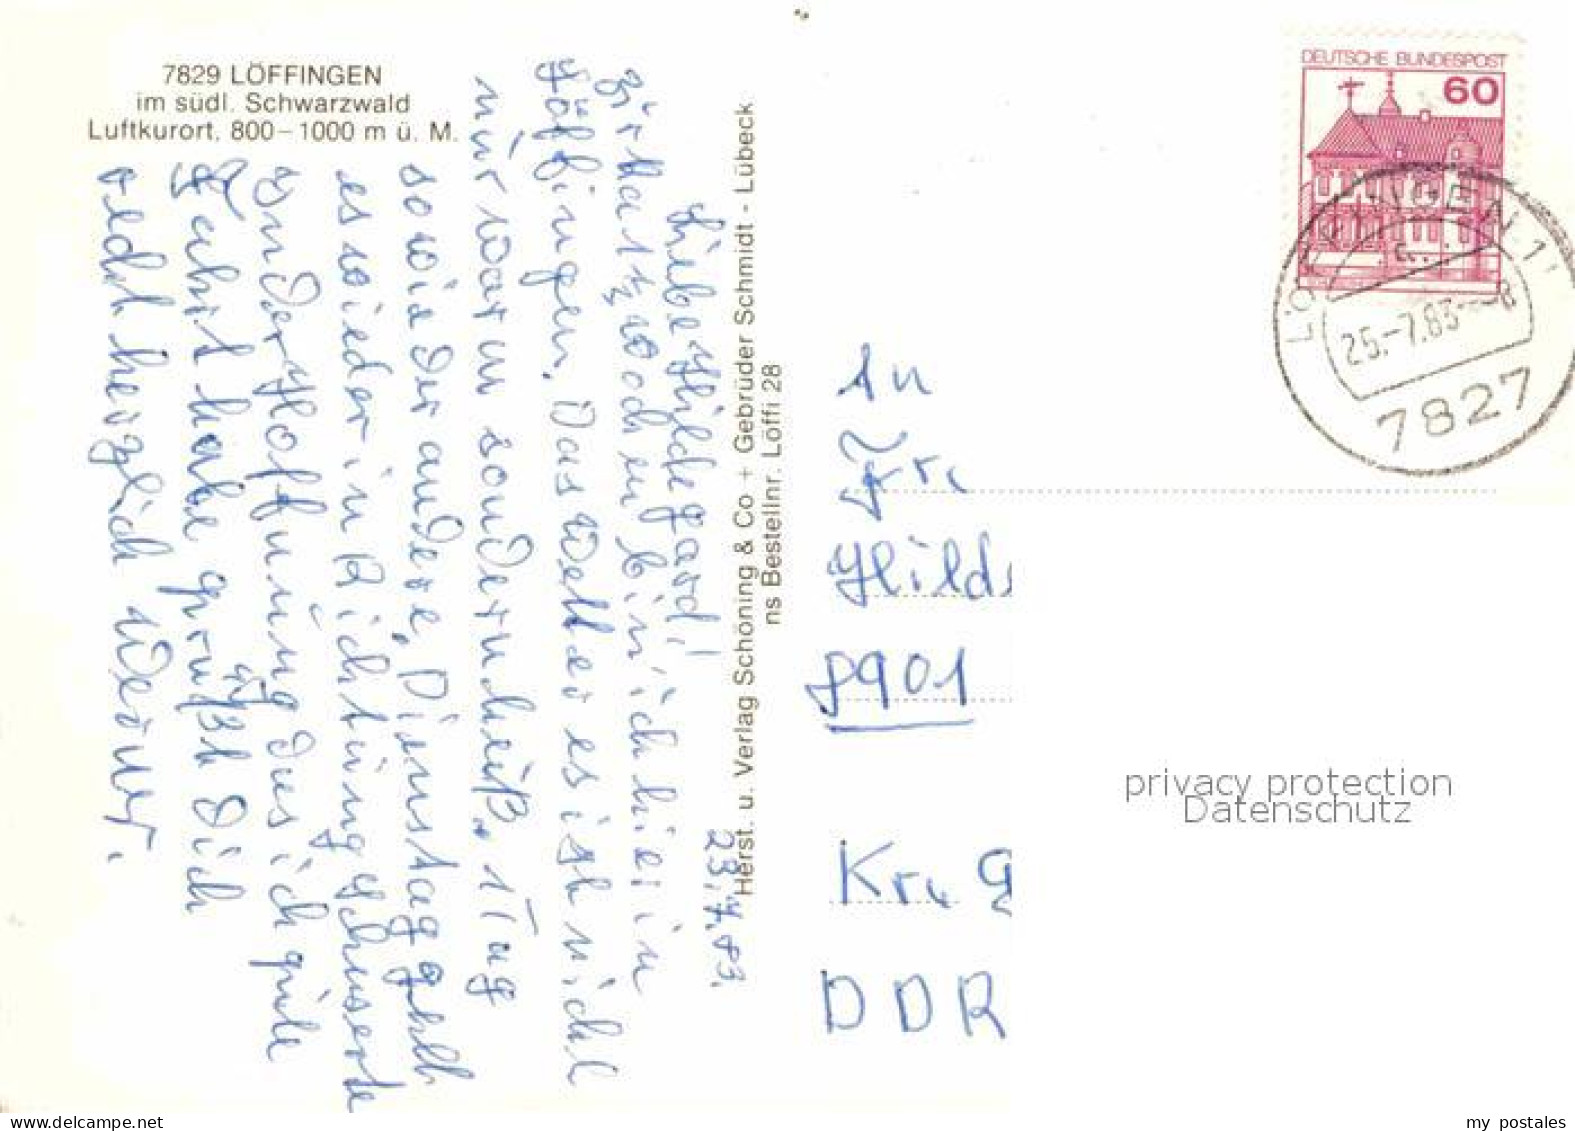 7829 LÖFFINGEN
im südl. Schwarzwald
Luftkurort, 800–1000 m ü. M.
23.7.83.
Liebe Hildegard!
zirka 1½ Wochen bin ich hier in
Löffingen. Das Wetter es ist nicht
nur warm sondern heiß. 1 Tag
so wie der andere. Dienstag geht
es wieder in Richtung
In der Hoffnung das ich gute
Fahrt habe grüßt Dich
recht herzlich Werner.
Herst. u. Verlag Schöning & Co + Gebrüder Schmidt - Lübeck
ns Bestellnr. Löffi 28
DEUTSCHE BUNDESPOST
60
25.-7.83-8
7827
An
Fr.
Hild
8901
Kr. G
DDR
privacy protection
Datenschutz
my postales
www.delcampe.net